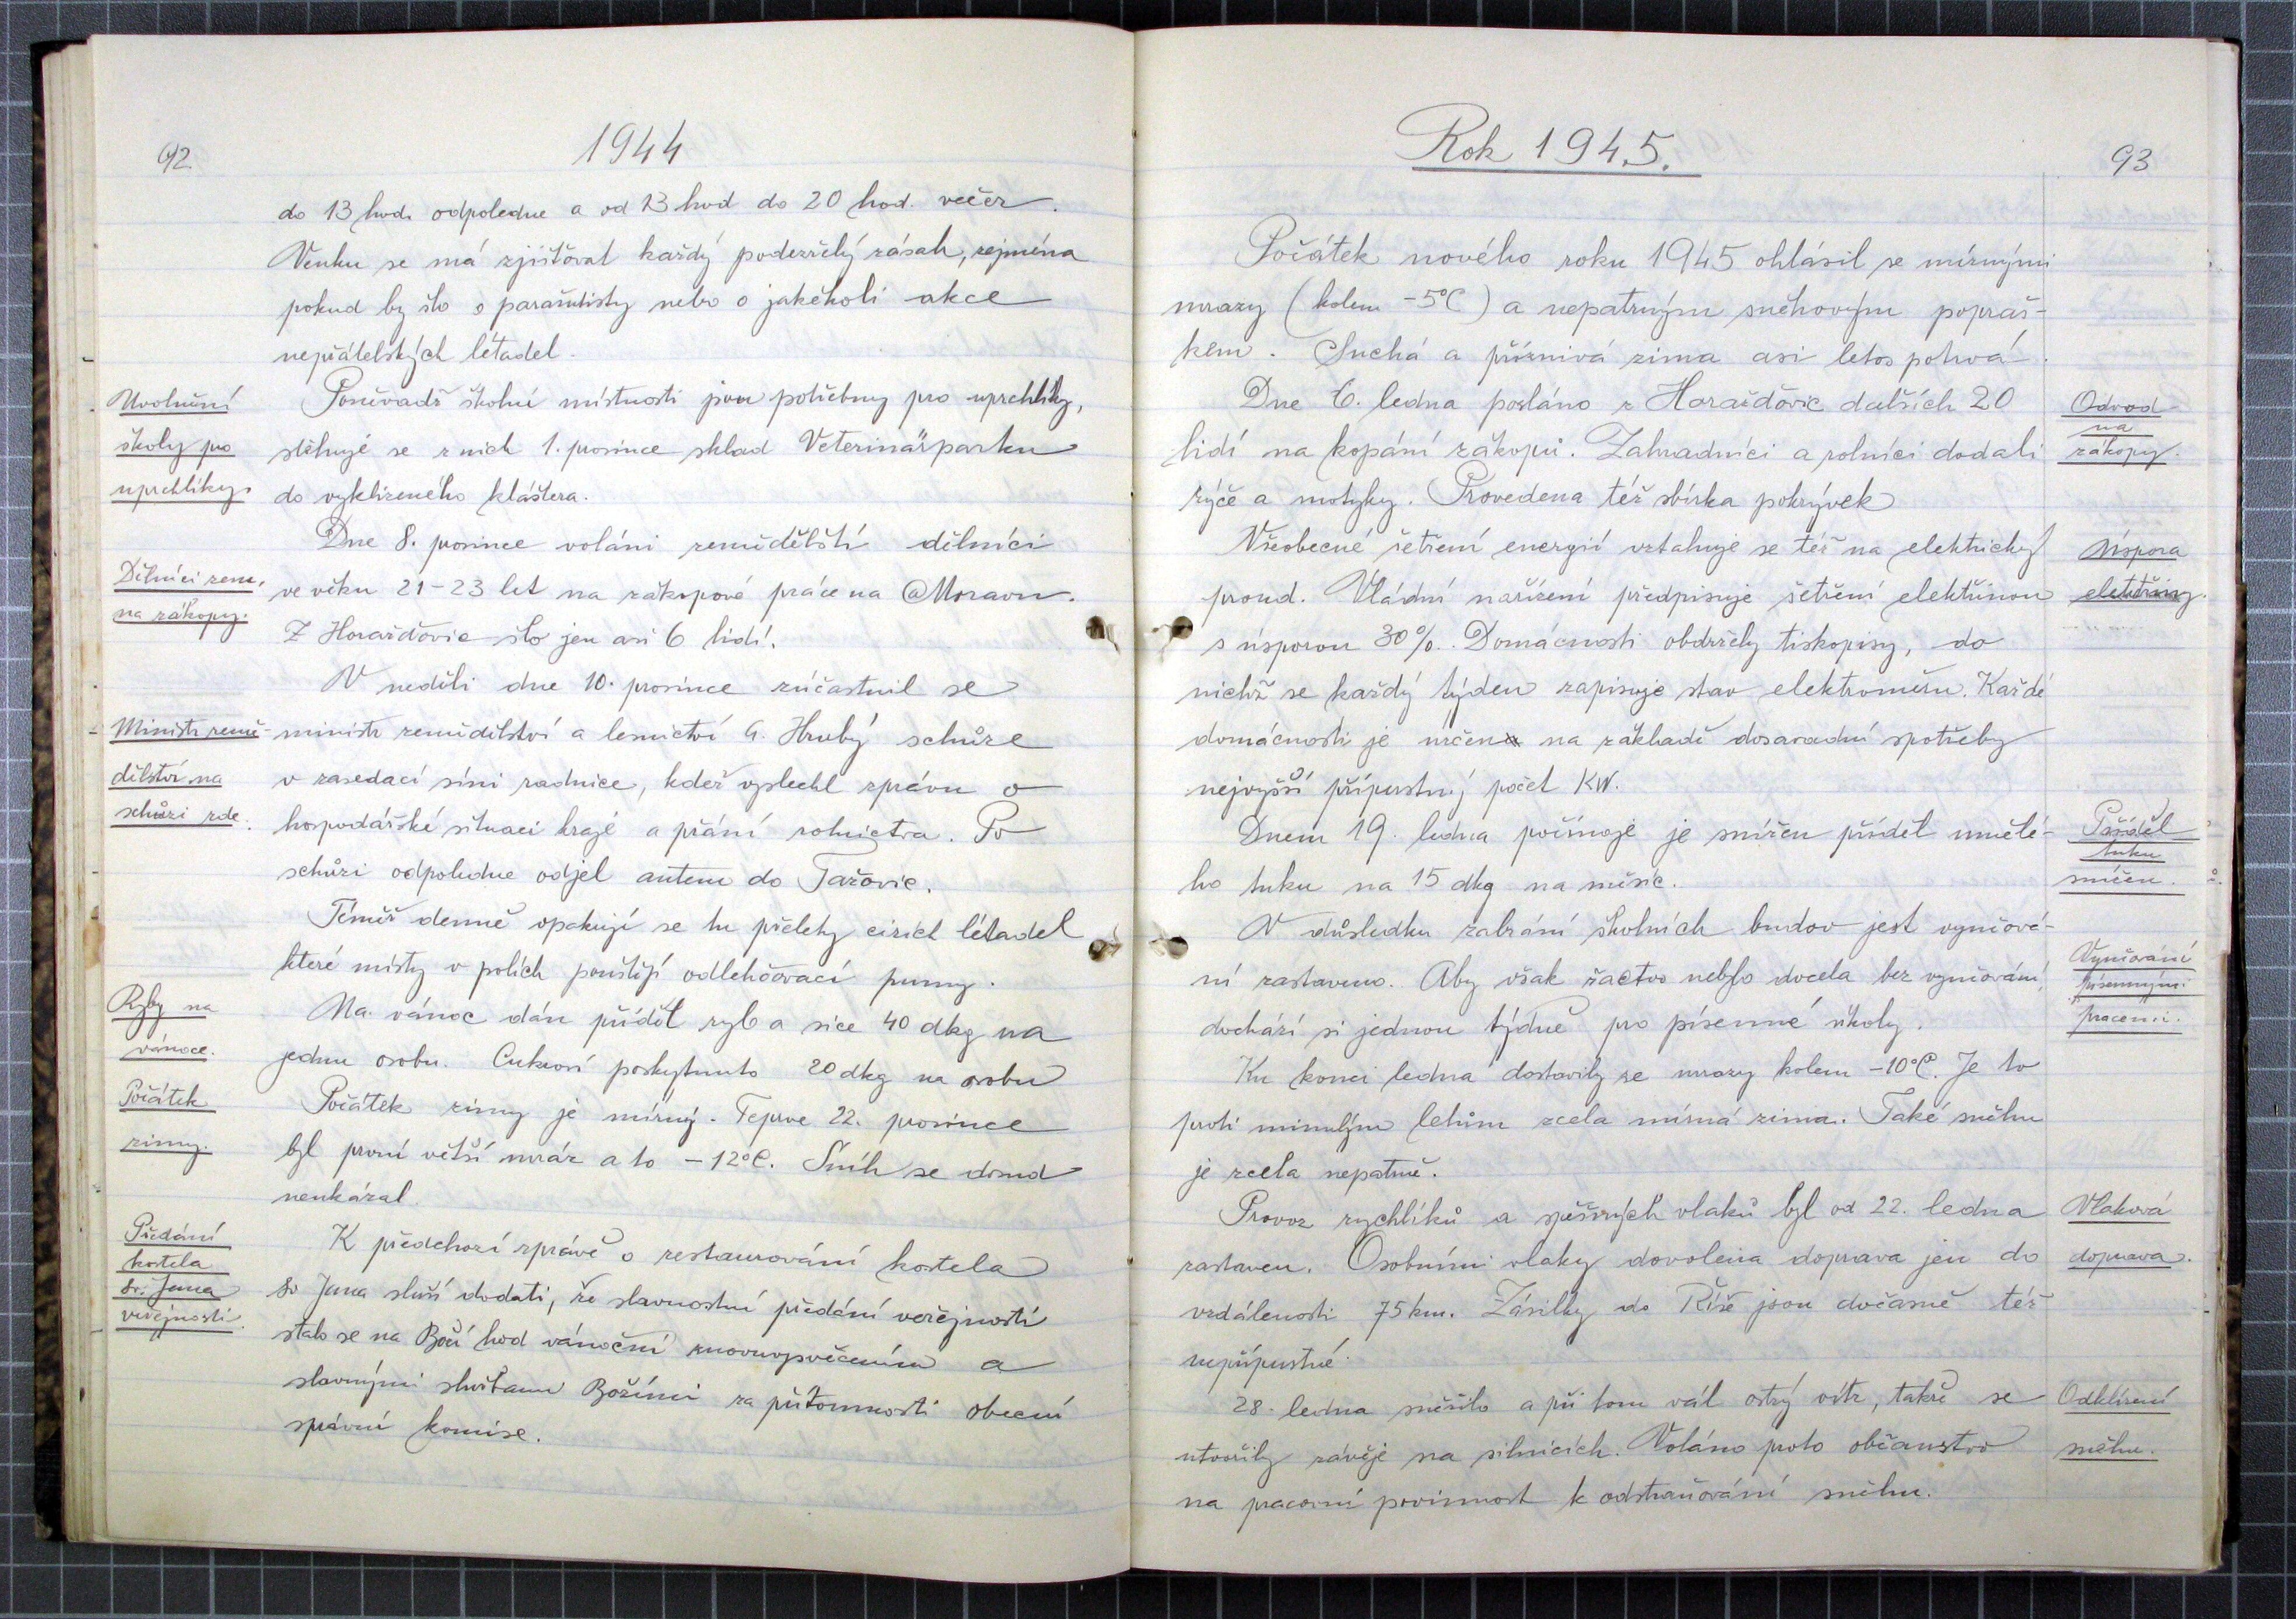 92
1944
do 13 hod. odpoledne a od 13 hod do 20 hod. večer.
Venku se má zjišťovat každý podezřelý zásah, zejména
pokud by šlo o parašutisty nebo o jakékoli akce
nepřátelských létadel.
Uvolnění
školy pro
uprchlíky.
Poněvadž školní místnosti jsou potřebny pro uprchlíky,
stěhuje se z nich 1. prosince sklad Veterinärparku
do vyklizeného kláštera.
Dělníci zem.
na zákopy.
Dne 8. prosince voláni zemědělští dělníci
ve věku 21-23 let na zákopové práce na Moravu.
Z Horažďovic šlo jen asi 6 lidí.
Ministr země-
dělství na
schůzi zde.
V neděli dne 10. prosince zúčastnil se
ministr zemědělství a lesnictví A. Hrubý schůze
v zasedací síni radnice, kdež vyslechl zprávu o
hospodářské situaci kraje a přání rolnictva. Po
schůzi odpoledne odjel autem do Tažovic.
Téměř denně opakují se tu přelety cizích létadel
které místy v polích pouštějí odlehčovací pumy.
Ryby na
vánoce.
Na vánoc dán příděl ryb a sice 40 dkg na
jednu osobu. Cukroví poskytnuto 20 dkg na osobu
Počátek
zimy.
Počátek zimy je mírný. Teprve 22. prosince
byl první větší mráz a to -12°C. Sníh se dosud
neukázal.
Předání
kostela
sv. Jana
veřejnosti.
K předchozí zprávě o restaurování kostela
sv Jana sluší dodati, že slavnostní předání veřejnosti
stalo se na Boží hod vánoční znovuvysvěcením a
slavnými službami Božími za přítomnosti obecní
správní komise.
Rok 1945.
93
Počátek nového roku 1945 ohlásil se mírnými
mrazy (kolem -5°C) a nepatrným sněhovým popraš-
kem. Suchá a příznivá zima asi letos potrvá.
Odvod
na
zákopy.
Dne 6. ledna posláno z Horažďovic dalších 20
lidí na kopání zákopů. Zahradníci a rolníci dodali
rýče a motyky. Provedena též sbírka pokrývek
Úspora
elektřiny.
Všeobecné šetření energií vztahuje se též na elektrický
proud. Vládní nařízení předpisuje šetření elektřinou
s úsporou 30%. Domácnosti obdržely tiskopisy, do
nichž se každý týden zapisuje stav elektroměru. Každé
domácnosti je určen na základě dosavadní spotřeby
nejvyšší přípustný počet KW.
Příděl
tuku
snížen.
Dnem 19. ledna počínaje je snížen příděl umělé-
ho tuku na 15 dkg na měsíc.
Vyučování
písemnými
pracemi.
V důsledku zabrání školních budov jest vyučová-
ní zastaveno. Aby však žactvo nebylo docela bez vyučování,
dochází si jednou týdně pro písemné úkoly.
Ku konci ledna dostavily se mrazy kolem -10°C. Je to
proti minulým letům zcela mírná zima. Také sněhu
je zcela nepatrně.
Vlaková
doprava.
Provoz rychlíků a spěšných vlaků byl od 22. ledna
zastaven. Osobními vlaky dovolena doprava jen do
vzdálenosti 75 km. Zásilky do Říše jsou dočasně též
nepřípustné.
Odklízení
sněhu.
28. ledna sněžilo a při tom vál ostrý vítr, takže se
utvořily závěje na silnicích. Voláno proto občanstvo
na pracovní povinnost k odstraňování sněhu.